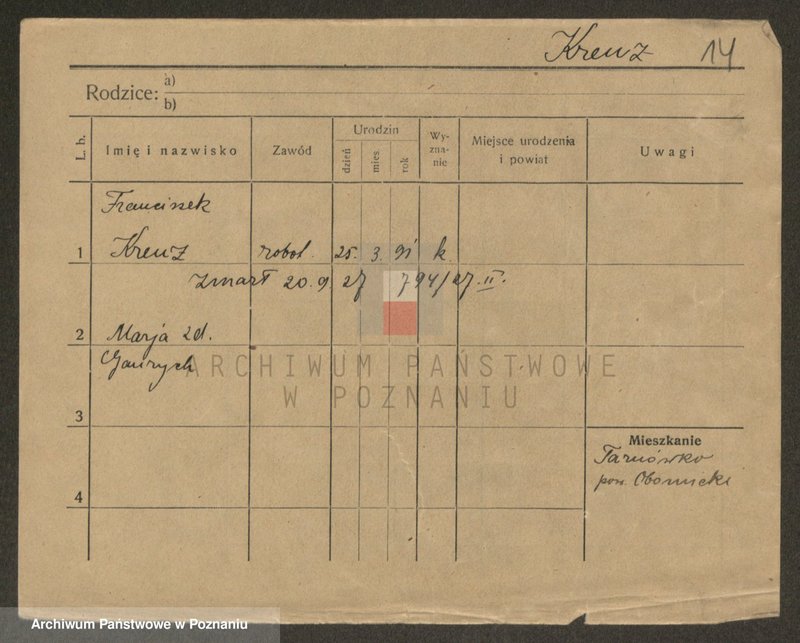 Kreuz 14
Rodzice: a)
b)
L. b. Imię i nazwisko Zawód Urodzin dzień mies. rok Wy-zna-nie Miejsce urodzenia i powiat Uwagi
Franciszek
1 Kreuz robot. 25. 3. 91 k.
zmarł 20.9.27 794/27.II.
2 Marja zd.
Gawrych
ARCHIWUM PAŃSTWOWE
W POZNANIU
3
Mieszkanie
Tarnówko
pow. Obornicki
4
Archiwum Państwowe w Poznaniu